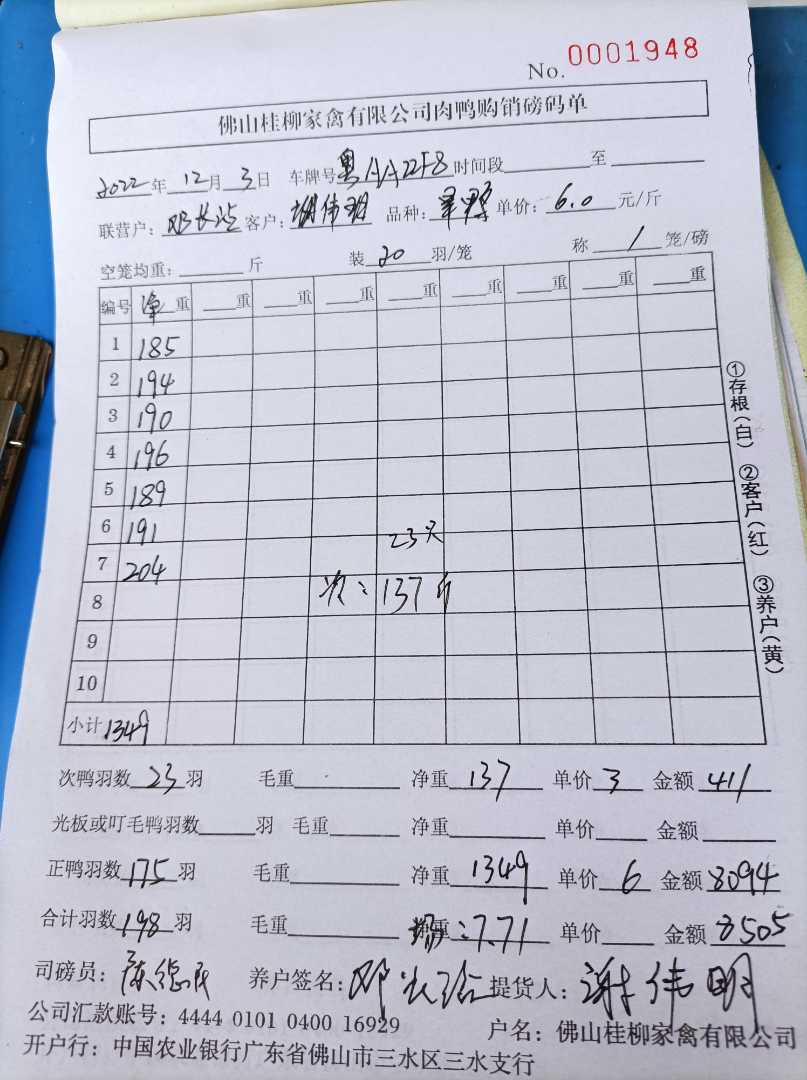 No. 0001948
佛山桂柳家禽有限公司肉鸭购销磅码单
2022年12月3日 车牌号粤AA22F8时间段 至
联营户: 邓长治 客户: 谢伟明 品种: 单价: 6.0 元/斤
空笼均重: 斤 装 20 羽/笼 称 1 笼/磅
编号 净重 重 重 重 重 重 重 重 重
1 185
2 194
3 190
4 196
5 189
6 191 23只
7 204
8 次: 137斤
9
10
小计 1349
①存根(白) ②客户(红) ③养户(黄)
次鸭羽数 23 羽 毛重 净重 137 单价 3 金额 411
光板或叮毛鸭羽数 羽 毛重 净重 单价 金额
正鸭羽数 175 羽 毛重 净重 1349 单价 6 金额 8094
合计羽数 198 羽 毛重 重: 7.71 单价 金额 8505
司磅员: 陈德民 养户签名: 邓长治 提货人: 谢伟明
公司汇款账号: 4444 0101 0400 16929 户名: 佛山桂柳家禽有限公司
开户行: 中国农业银行广东省佛山市三水区三水支行